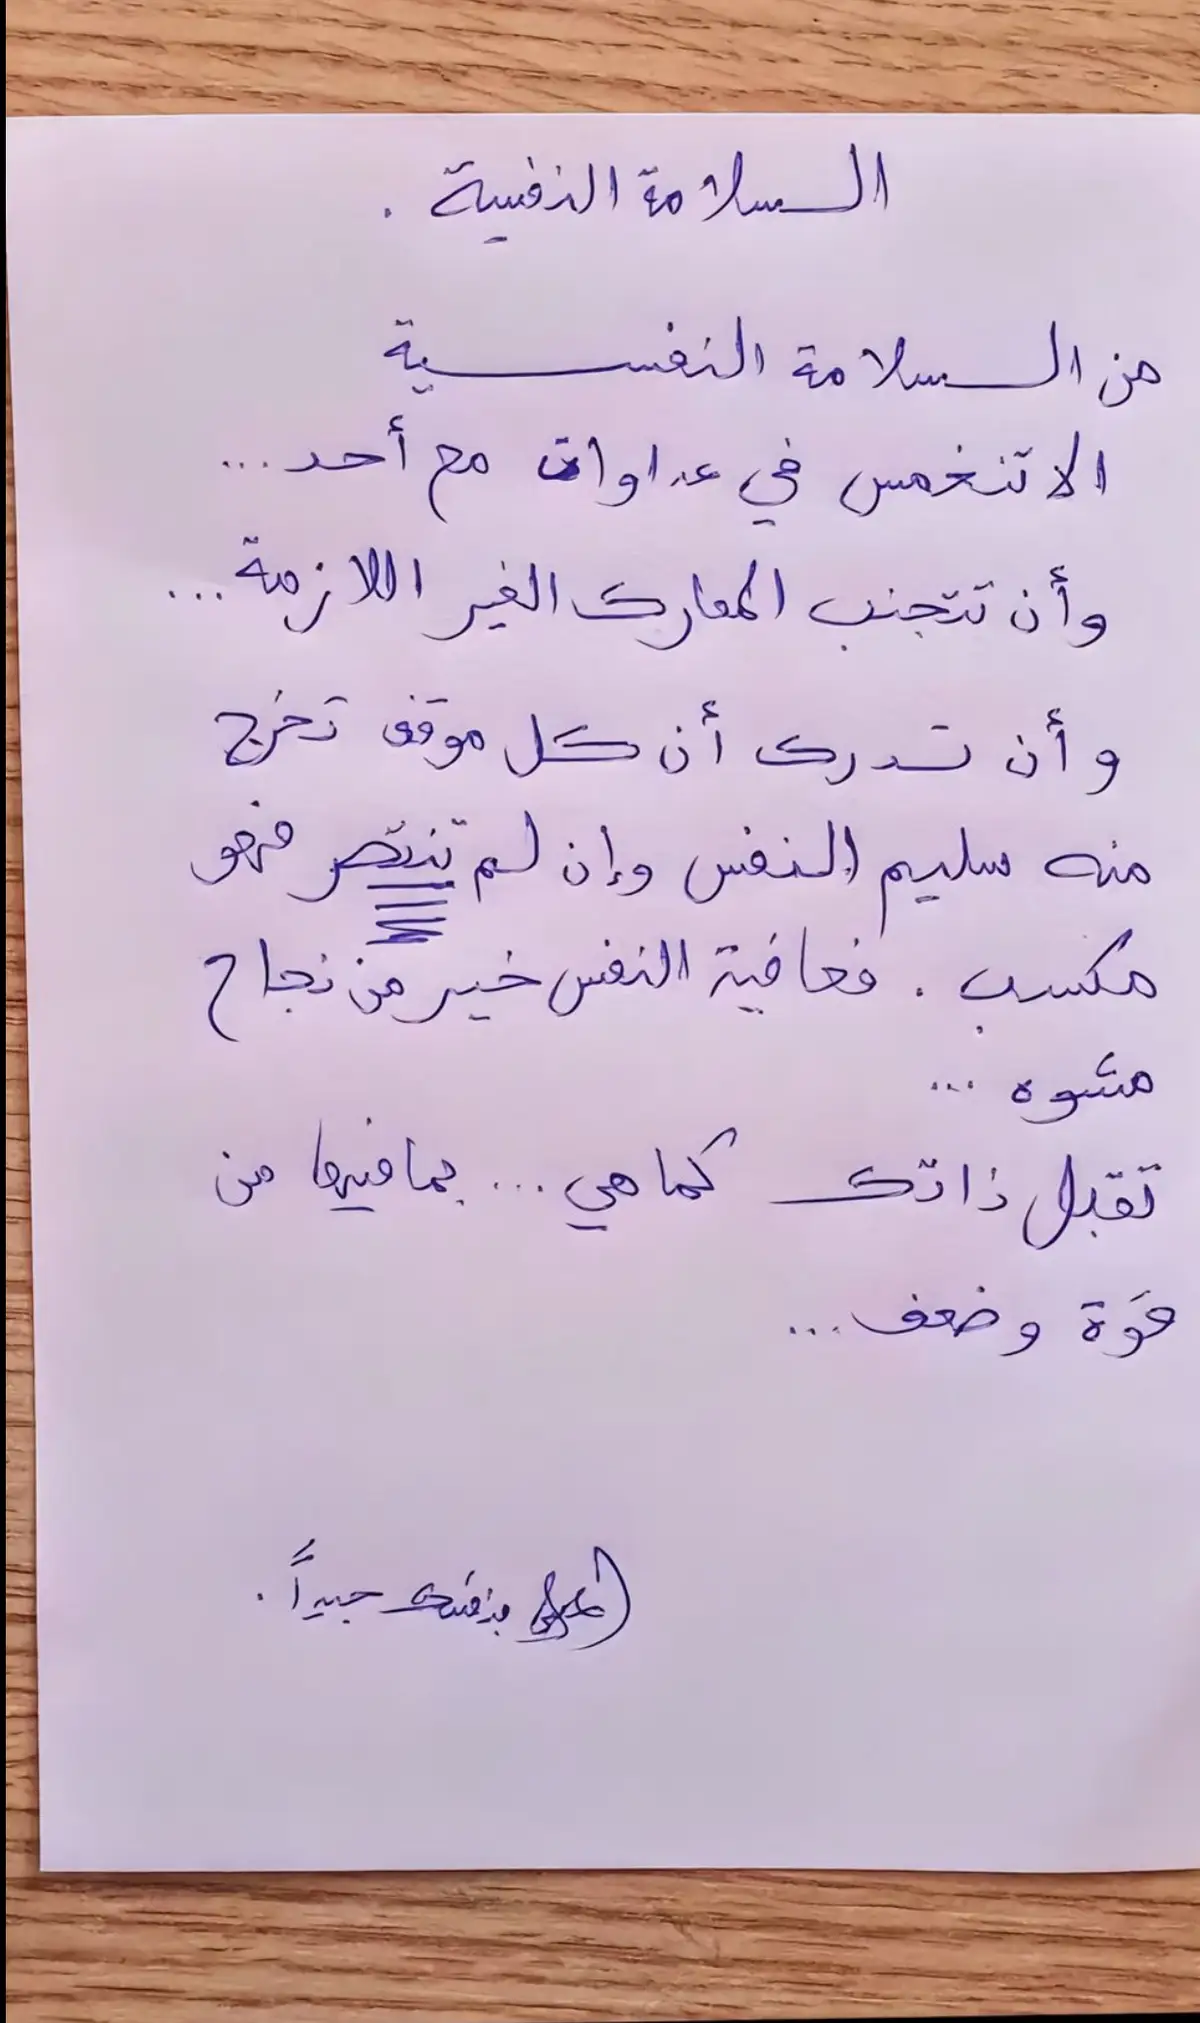 السلامة النفسية .
من السلامة النفسية
الا تنغمس في عداوات مع أحد ...
وأن تتجنب المعارك الغير اللازمة ...
وأن تدرك أن كل موقف تخرج
منه سليم النفس وإن لم تنتصر فهو
مكسب . فعافية النفس خير من نجاح
مشوه ...
تقبل ذاتك كما هي ... بما فيها من
قوة وضعف ...
بنفسك جيداً .